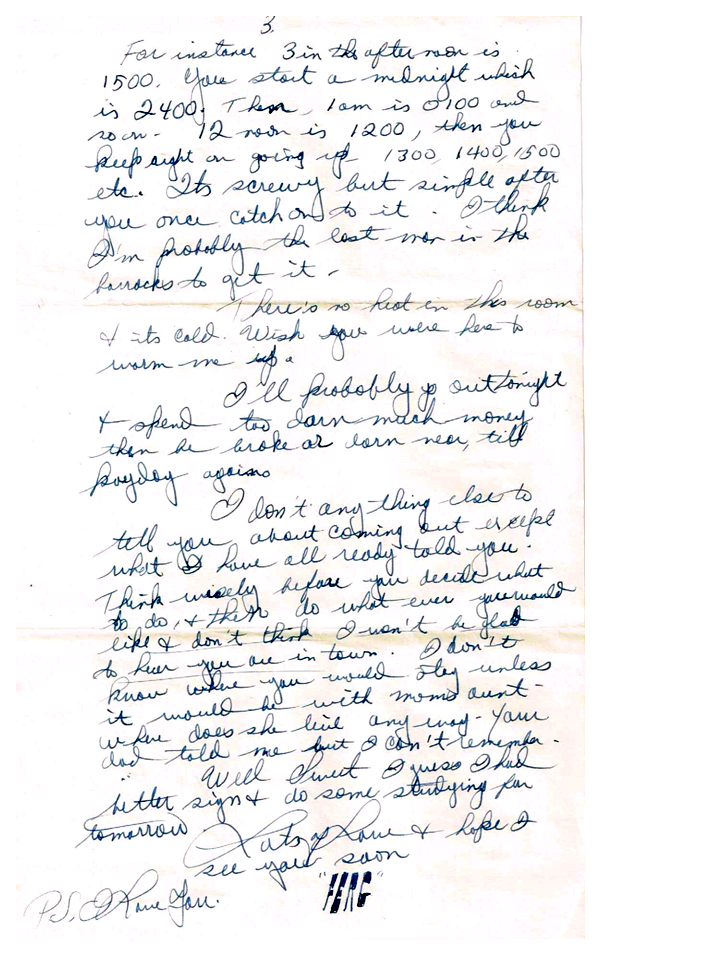 3.
For instance 3 in the afternoon is
1500. You start a midnight which
is 2400. Then, 1am is 0100 and
so on. 12 noon is 1200, then you
keep right on going up 1300, 1400, 1500
etc. Its screwy but simple after
you once catch on to it. I think
I'm probably the last man in the
barracks to get it.
There's no heat in this room
& its cold. Wish you were here to
warm me up.
I'll probably go out tonight
& spend too darn much money
then be broke or darn near, till
payday again.
I don't any thing else to
tell you about coming out except
what I have all ready told you.
Think wisely before you decide what
to do, & then do what ever you would
like & don't think I won't be glad
to hear you are in town. I don't
know where you would stay unless
it would be with moms aunt-
where does she live any way - Your
dad told me but I can't remember.
Well Sweet I guess I had
better sign & do some studying for
tomorrow
Lots of Love & hope I
see you soon
"FERG"
P.S. I Love You.